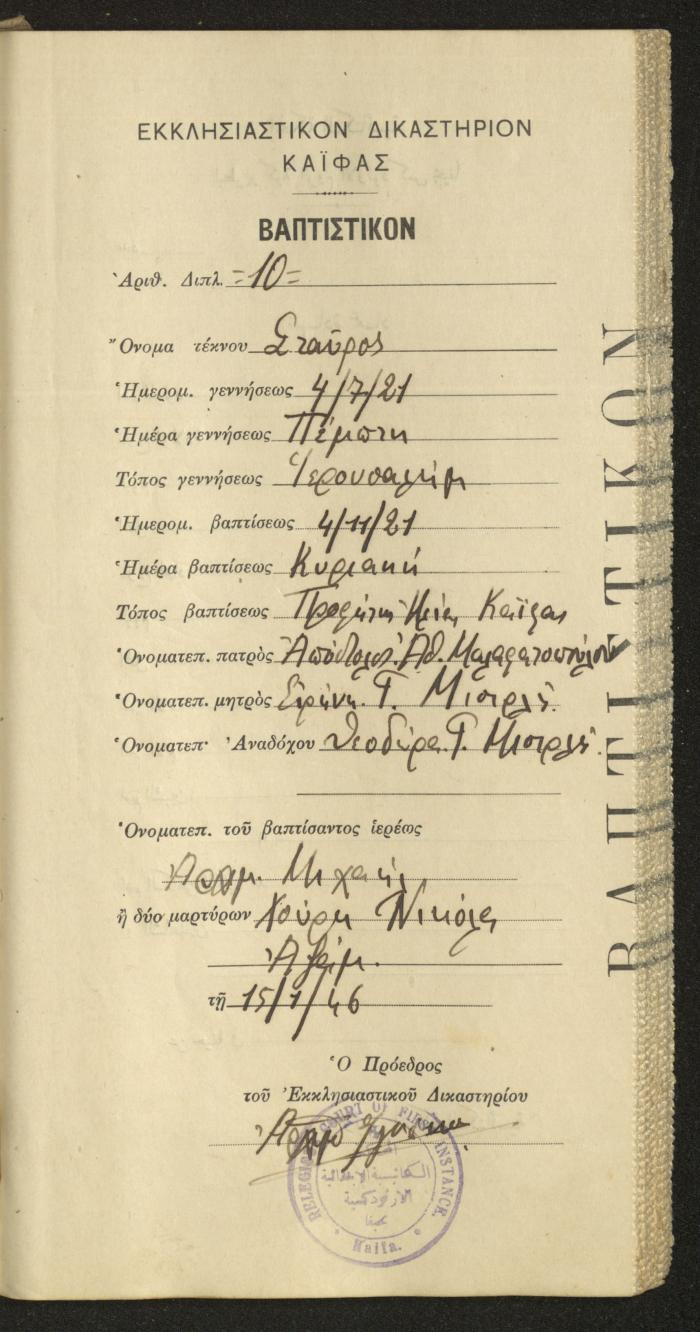 ΕΚΚΛΗΣΙΑΣΤΙΚΟΝ ΔΙΚΑΣΤΗΡΙΟΝ
ΚΑΪΦΑΣ
ΒΑΠΤΙΣΤΙΚΟΝ
Ἀριθ. Διπλ. =10=
Ὄνομα τέκνου Σταῦρος
Ἡμερομ. γεννήσεως 4/7/21
Ἡμέρα γεννήσεως Πέμπτη
Τόπος γεννήσεως Ἱερουσαλήμ
Ἡμερομ. βαπτίσεως 4/11/21
Ἡμέρα βαπτίσεως Κυριακή
Τόπος βαπτίσεως Προφήτης Ἠλίας Καϊφας
Ὀνοματεπ. πατρὸς Ἀπόστολος Ἀθ.
Ὀνοματεπ. μητρὸς Εἰρήνη Γ. Μισιρλῆ
Ὀνοματεπ· Ἀναδόχου Θεοδώρα Γ. Μισιρλῆ
Ὀνοματεπ. τοῦ βαπτίσαντος ἱερέως
Ἀρχιμ. Μιχαήλ
ἢ δύο μαρτύρων Χούρη Νικόλα
Ἀζάμ.
τῇ 15/1/46
Ὁ Πρόεδρος
τοῦ Ἐκκλησιαστικοῦ Δικαστηρίου
RELEGIOUS COURT OF FIRST INSTANCE.
الكنائسية الابتدائية
الارثوذكسية
بحيفا
Haifa.
ΒΑΠΤΙΣΤΙΚΟΝ